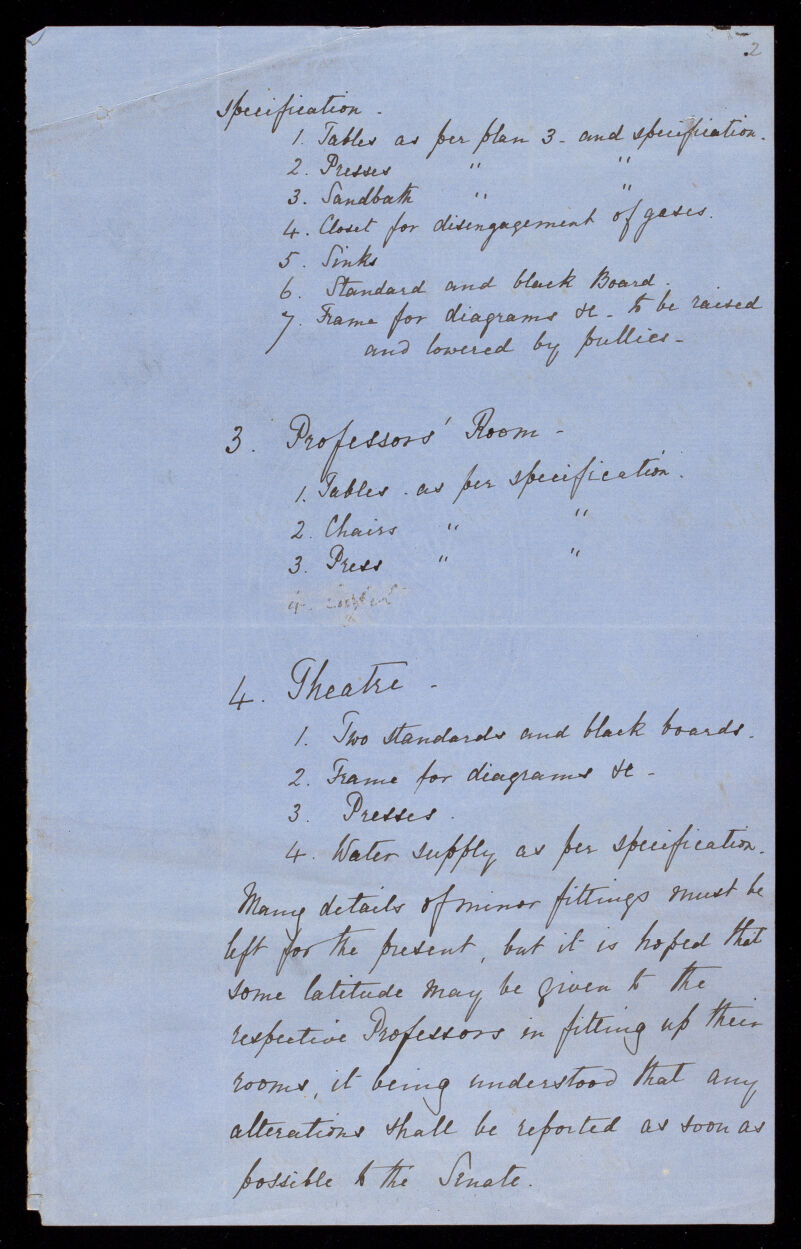 2
specification -
1. Tables as per plan 3 - and specification.
2. Presses " "
3. Sandbath " "
4. Closet for disengagement of gases.
5. Sinks
6. Standard and black Board.
7. Frame for diagrams &c - to be raised
and lowered by pullies -
3. Professors' Room -
1. Tables - as per specification.
2. Chairs " "
3. Press " "
4.
4. Theatre -
1. Two standards and black boards.
2. Frame for diagrams &c -
3. Presses.
4. Water supply as per specification.
Many details of minor fittings must be
left for the present, but it is hoped that
some latitude may be given to the
respective Professors in fitting up their
rooms, it being understood that any
alterations shall be reported as soon as
possible to the Senate.